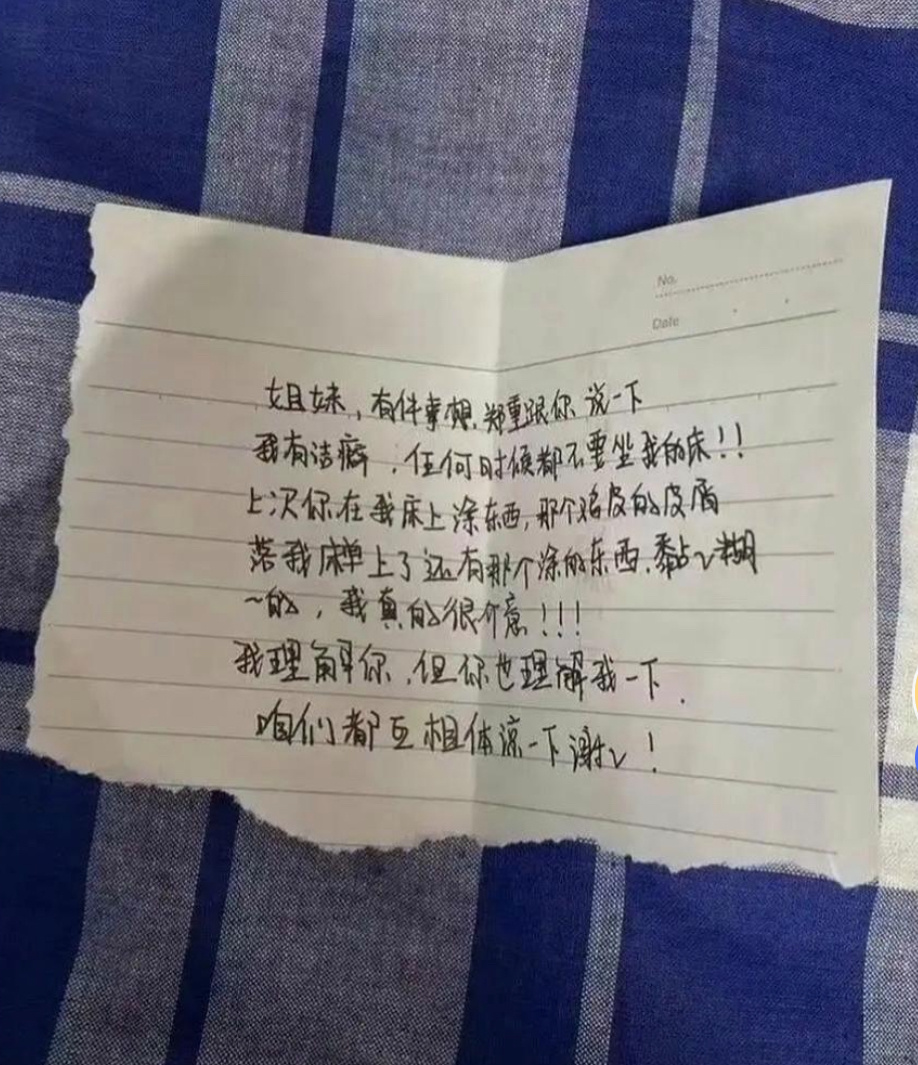 No.
Date
姐妹，有件事想郑重跟你说一下
我有洁癖，任何时候都不要坐我的床！！
上次你在我床上涂东西，那个鸡皮的皮屑
落我床单上了还有那个涂的东西，黏々糊
~的，我真的很介意！！！
我理解你，但你也理解我一下．
咱们都互相体凉一下谢々！